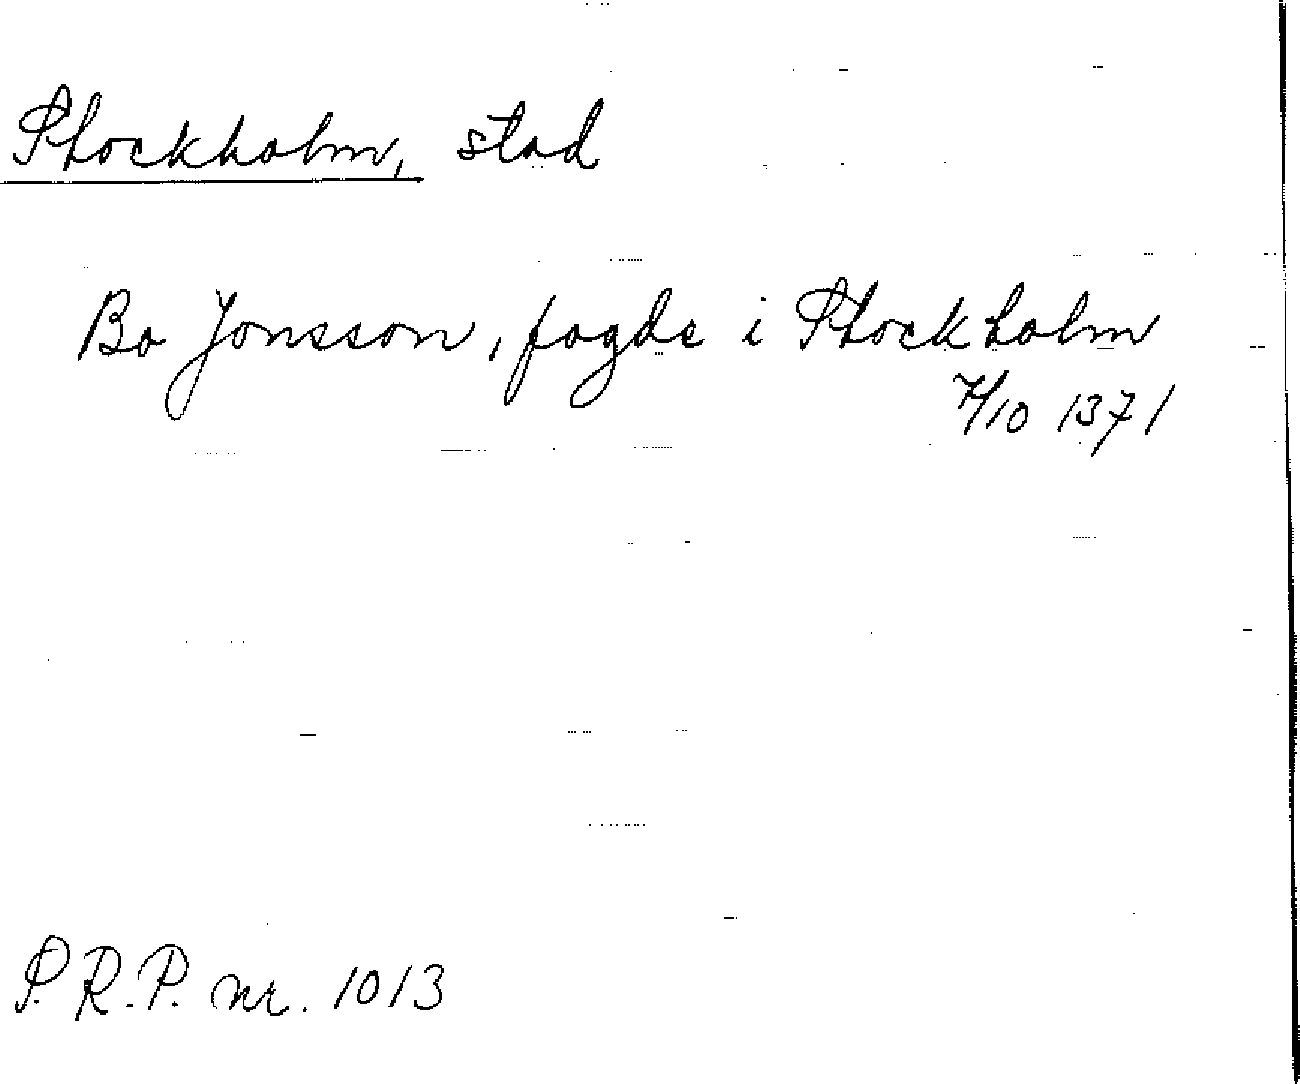 Stockholm, stad
Bo Jonsson, fogde i Stockholm
7/10 1371
S.R.P. nr. 1013